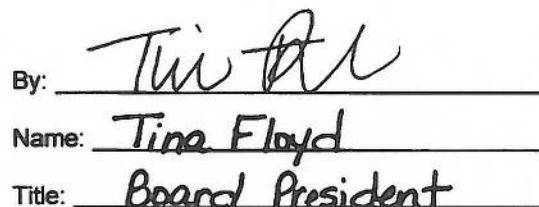 By:
Name: Tina Floyd
Title: Board President